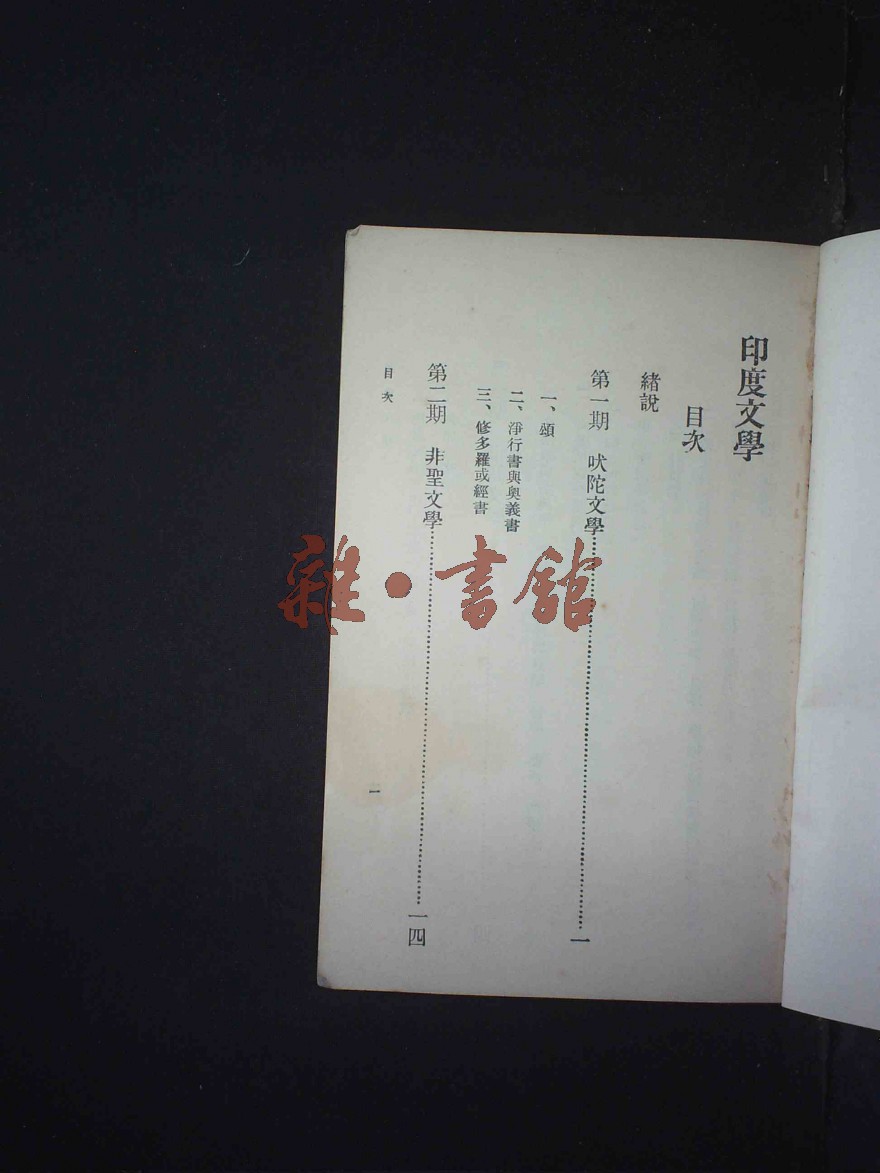 印度文學
目次
緒說
第一期　吠陀文學……一
一、頌
二、淨行書與奧義書
三、修多羅或經書
第二期　非聖文學……一四
目次
一
雜·書館